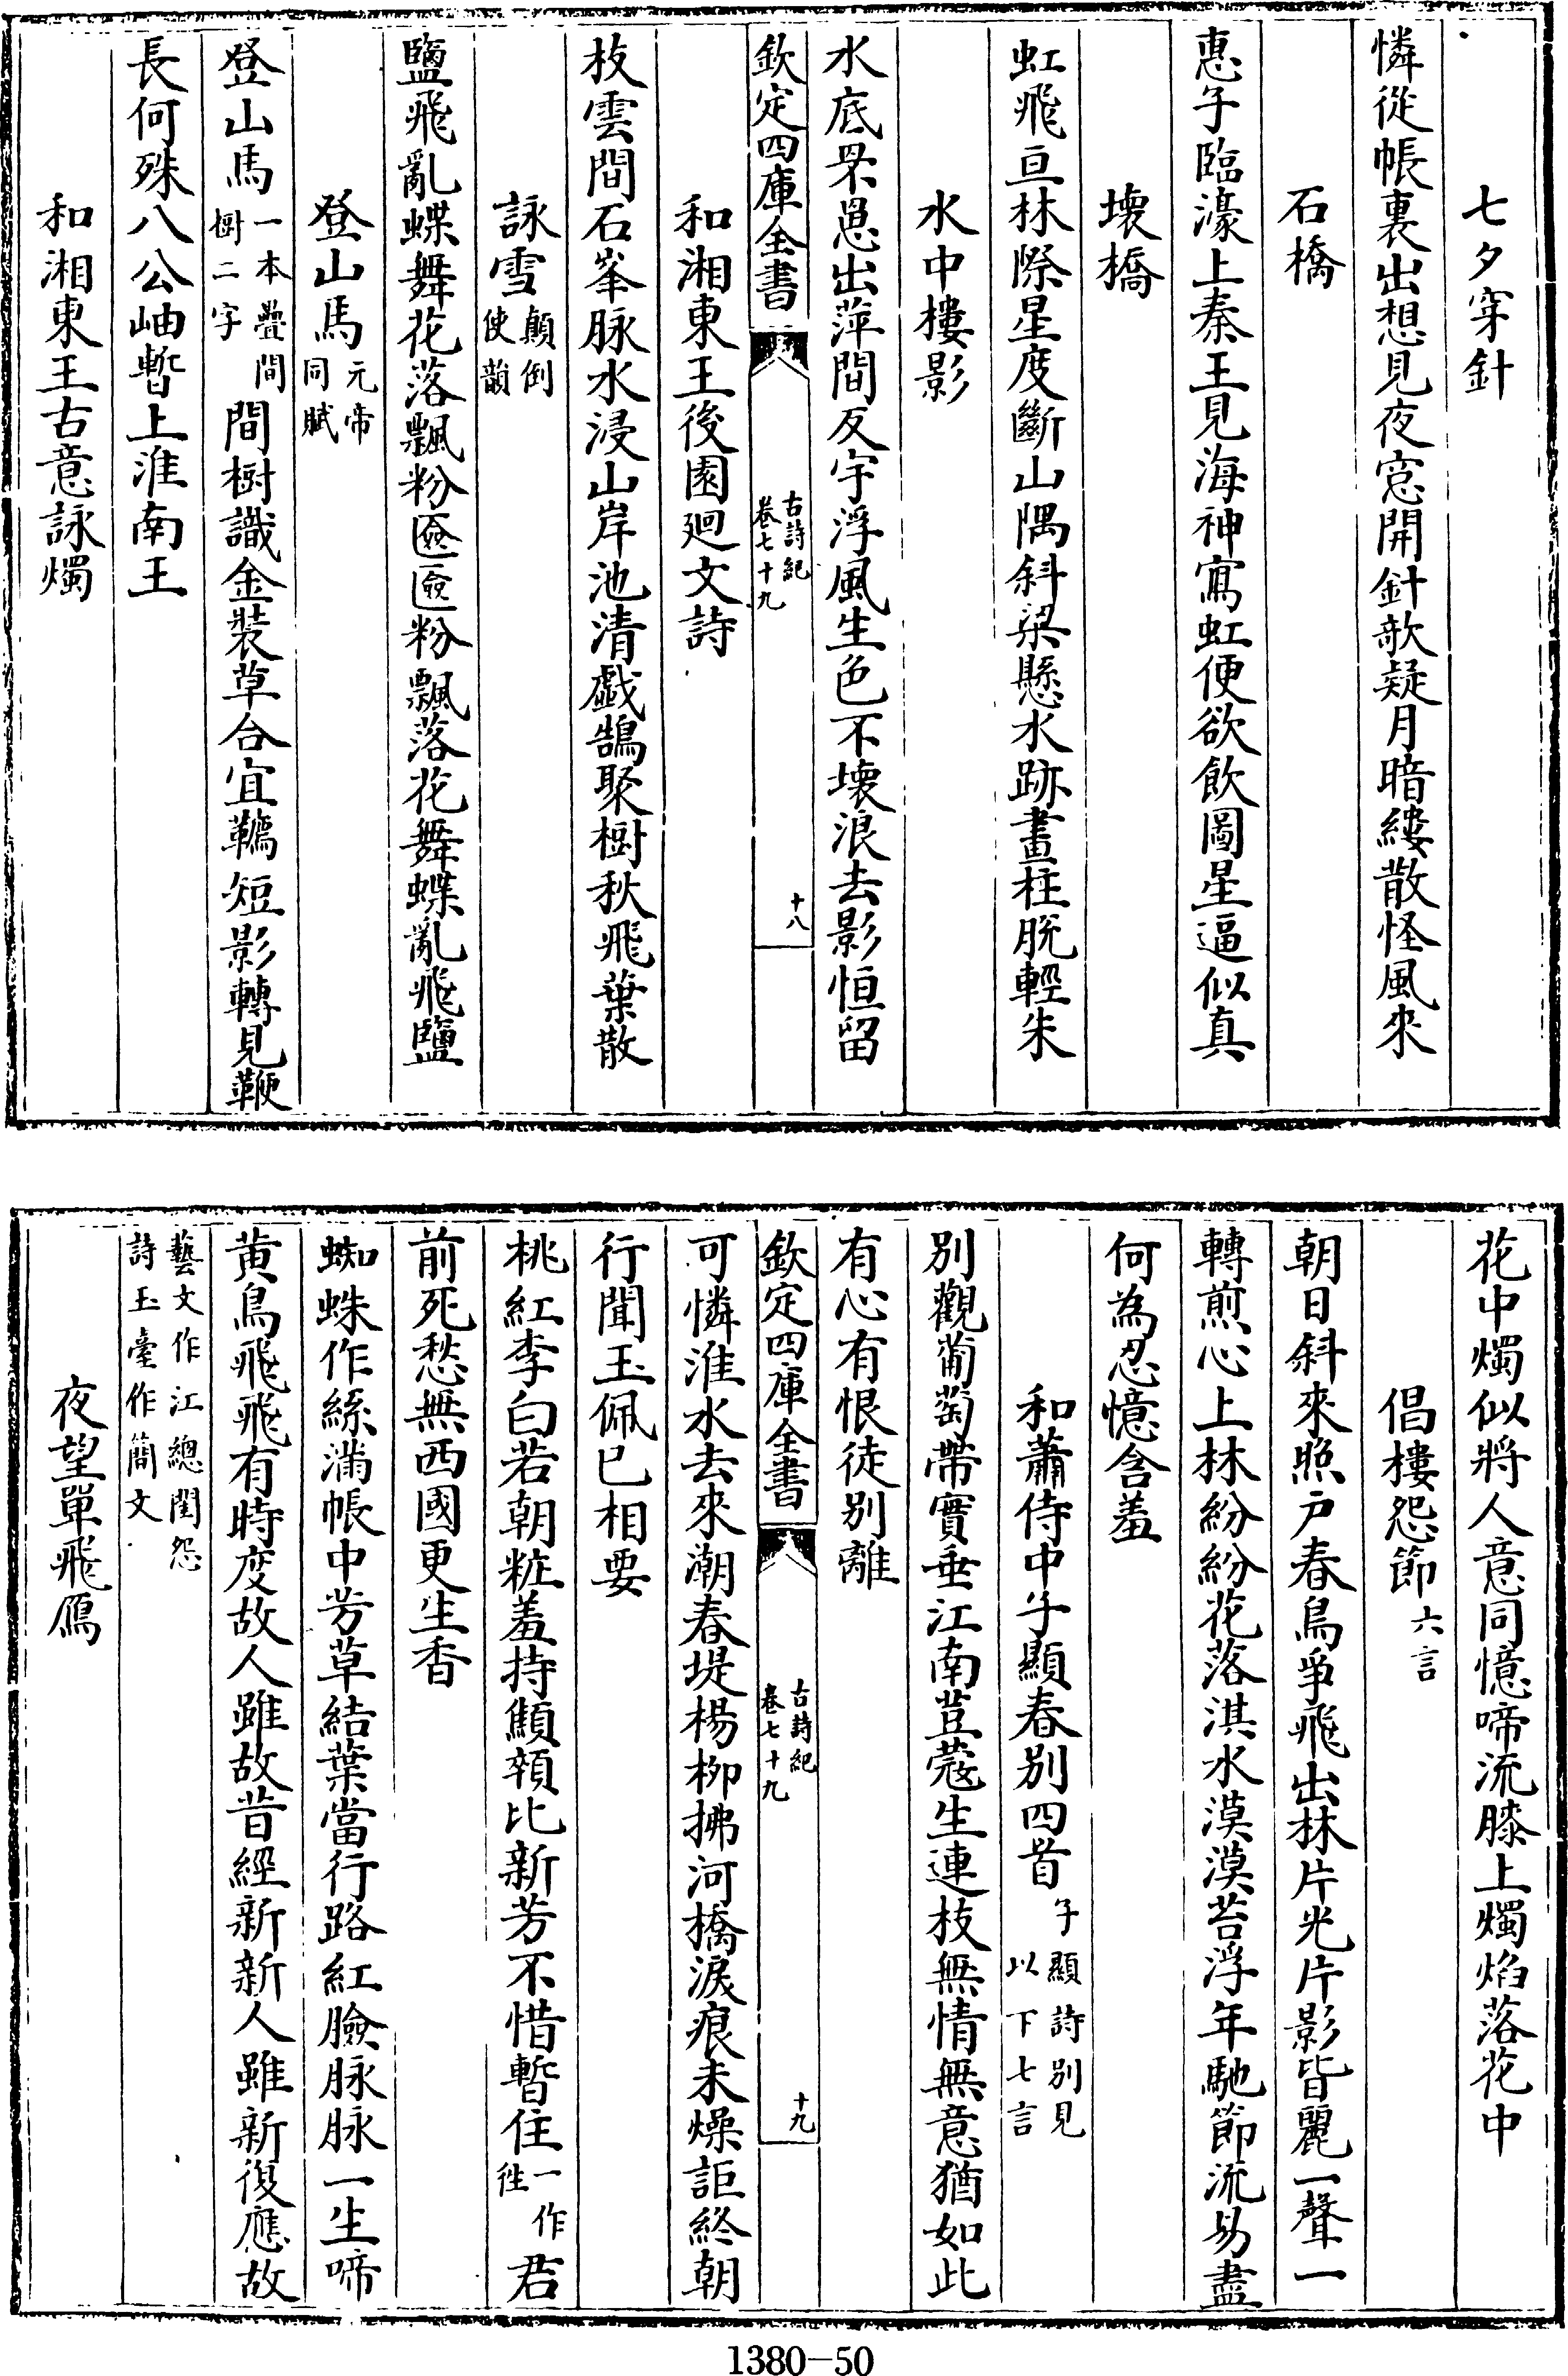 七夕穿針
憐從帳裏出想見夜窓開針欹疑月暗縷散怪風來
石橋
惠子臨濠上秦王見海神寫虹便欲飲圖星逼似真
壊橋
虹飛亘林際星度斷山隅斜梁懸水跡畫柱脱輕朱
水中樓影
水底罘罳出萍間反宇浮風生色不壊浪去影恒留
欽定四庫全書
古詩紀
卷七十九
十八
和湘東王後園廻文詩
枝雲間石峯脉水浸山岸池清戲鵠聚樹秋飛葉散
詠雪顛倒使韻
鹽飛亂蝶舞花落飄粉匳匳粉飄落花舞蝶亂飛鹽
登山馬元帝同賦
登山馬一本疊間樹二字間樹識金裝草合宜韉短影轉見鞭
長何殊八公岫暫上淮南王
和湘東王古意詠燭
花中燭似將人意同憶啼流膝上燭焰落花中
倡樓怨節六言
朝日斜來照户春鳥爭飛出林片光片影皆麗一聲一
轉煎心上林紛紛花落淇水漠漠苔浮年馳節流易盡
何為忍憶含羞
和蕭侍中子顯春别四首子顯詩别見以下七言
别觀葡萄帶實垂江南荳蔻生連枝無情無意猶如此
有心有恨徒别離
欽定四庫全書
古詩紀
卷七十九
十九
可憐淮水去來潮春堤楊柳拂河橋淚痕未燥詎終朝
行聞玉佩已相要
桃紅李白若朝粧羞持顦顇比新芳不惜暫住一作徃君
前死愁無西國更生香
蜘蛛作絲滿帳中芳草結葉當行路紅臉脉脉一生啼
黄鳥飛飛有時度故人雖故昔經新新人雖新復應故
藝文作江總閨怨
詩玉臺作簡文
夜望單飛鴈
1380-50